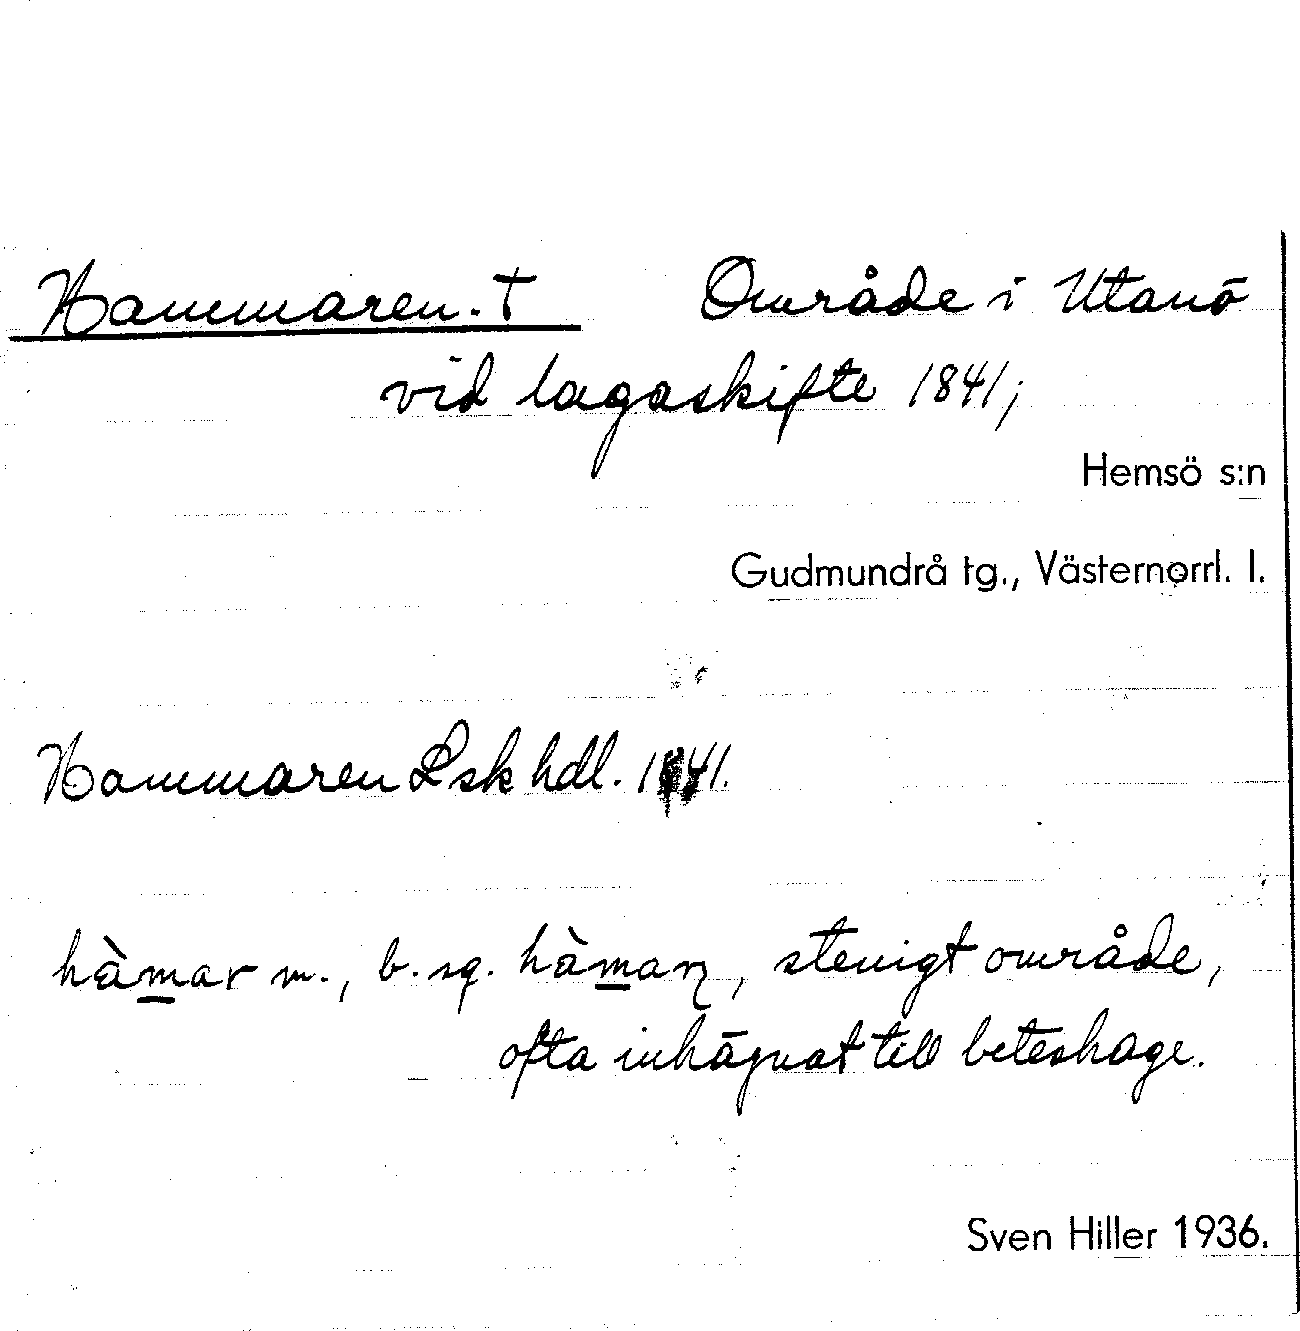 Hammaren. † Område i Utanö
vid lagaskifte 1841;
Hemsö s:n
Gudmundrå tg., Västernorrl. l.
Hammaren Lsk hdl. 1841.
hàmar m., b. sg. hàmaɳ, stenigt område,
ofta inhägnat till beteshage.
Sven Hiller 1936.